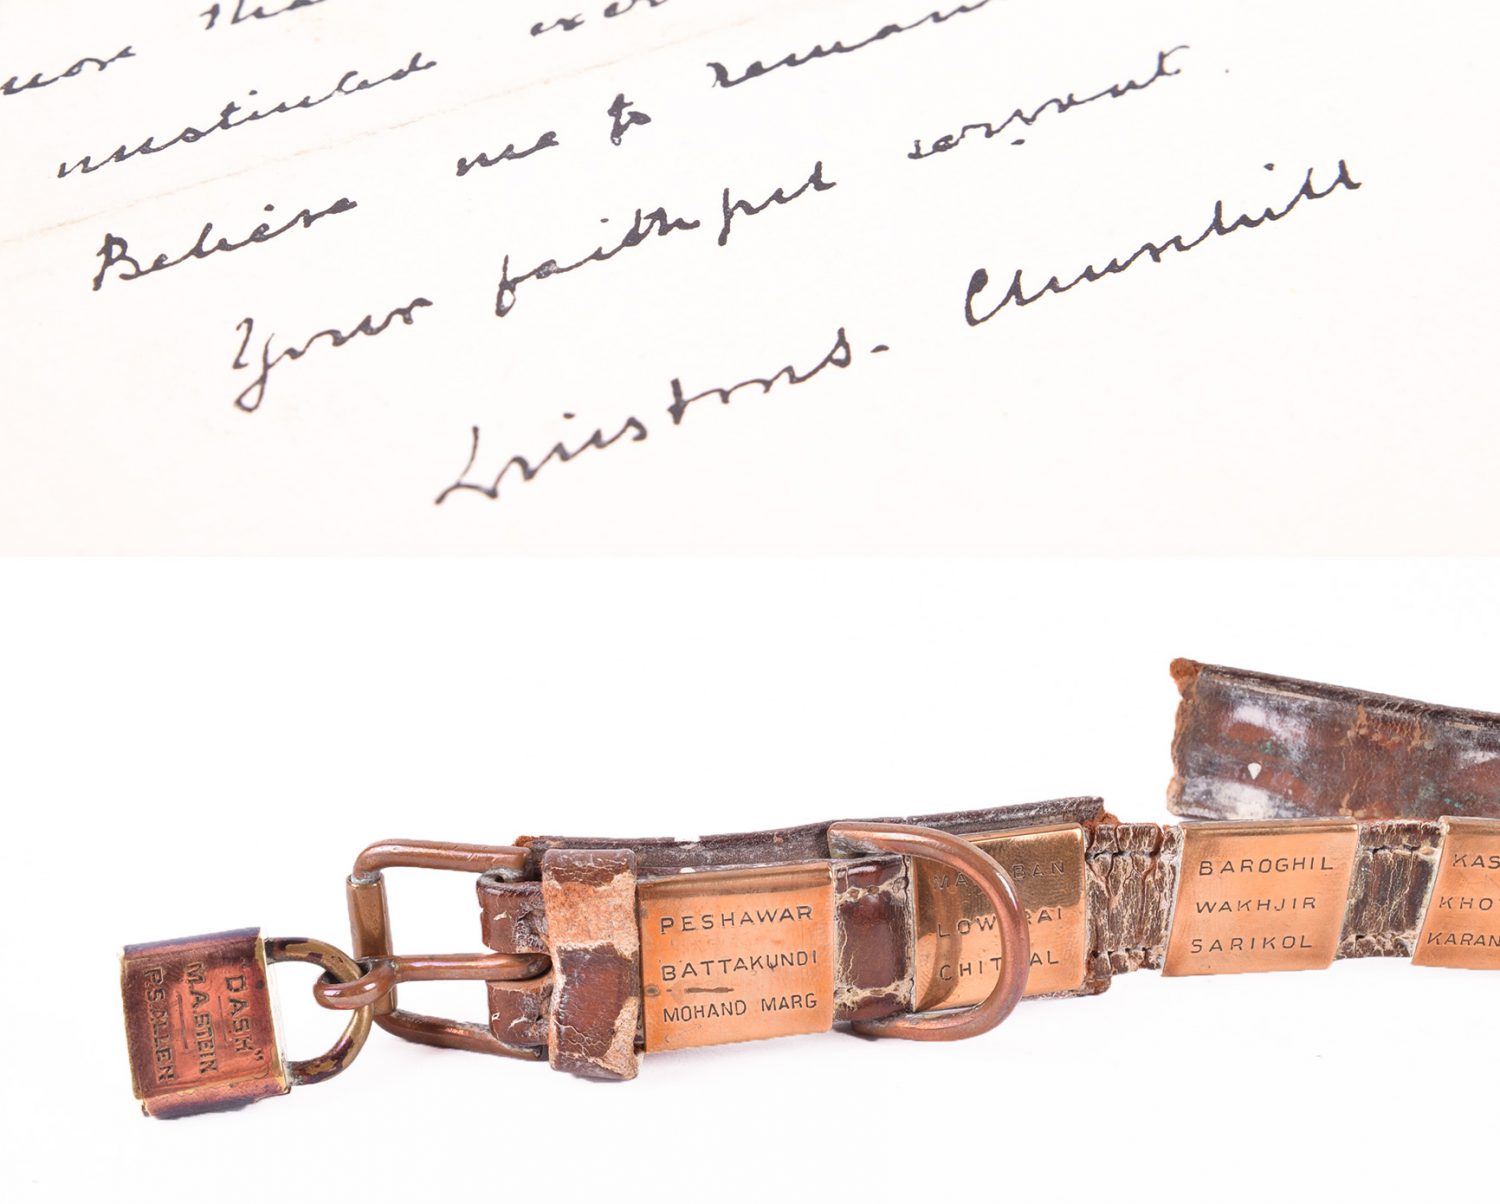 more tha
instinled
Believe me to remain
Your faithful servant.
Winston S. Churchill
"DASH"
M.A.STEIN
P.S.ALLEN
PESHAWAR
BATTAKUNDI
MOHAND MARG
LOW RAI
CHIT AL
BAROGHIL
WAKHJIR
SARIKOL
KAS
KHOT
KARAN